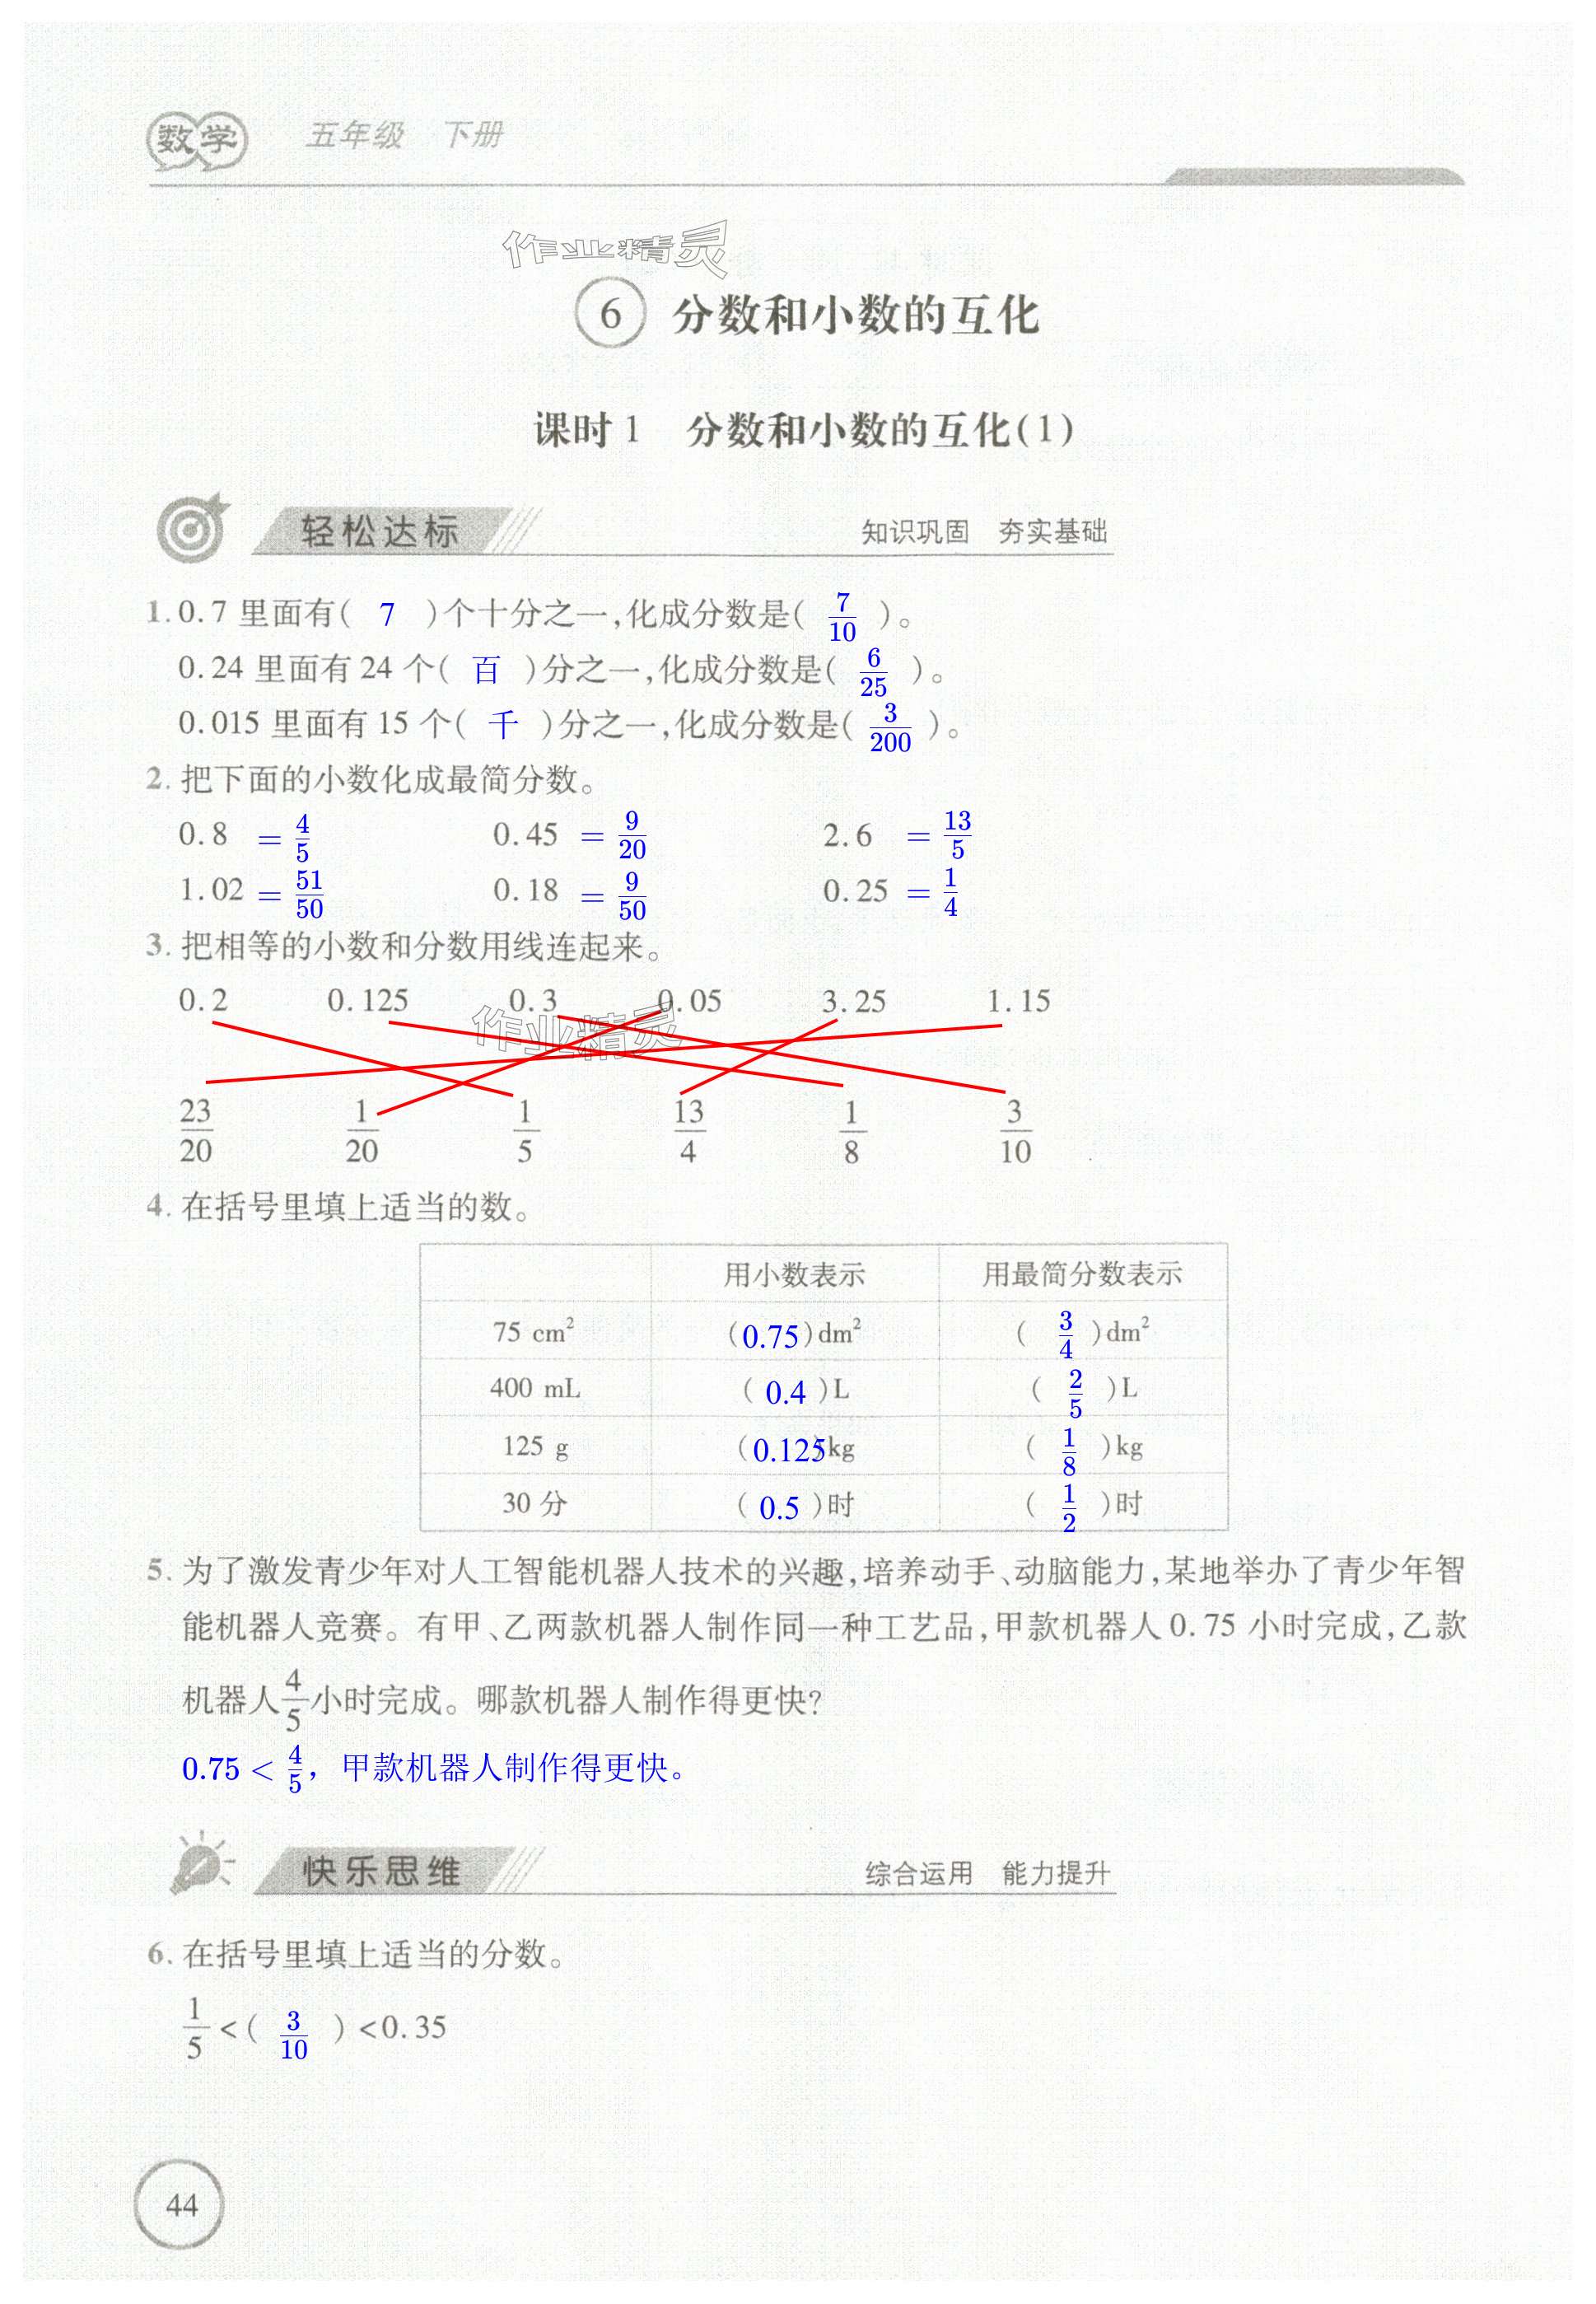 数学 五年级 下册
作业精灵
6 分数和小数的互化
课时1 分数和小数的互化(1)
轻松达标 知识巩固 夯实基础
1. 0.7 里面有( 7 )个十分之一,化成分数是( 7/10 )。
0.24 里面有 24 个( 百 )分之一,化成分数是( 6/25 )。
0.015 里面有 15 个( 千 )分之一,化成分数是( 3/200 )。
2. 把下面的小数化成最简分数。
0.8 = 4/5 0.45 = 9/20 2.6 = 13/5
1.02 = 51/50 0.18 = 9/50 0.25 = 1/4
3. 把相等的小数和分数用线连起来。
0.2 0.125 0.3 0.05 3.25 1.15
作业精灵
23/20 1/20 1/5 13/4 1/8 3/10
4. 在括号里填上适当的数。
用小数表示 用最简分数表示
75 cm² (0.75)dm² ( 3/4 )dm²
400 mL ( 0.4 )L ( 2/5 )L
125 g (0.125)kg ( 1/8 )kg
30 分 ( 0.5 )时 ( 1/2 )时
5. 为了激发青少年对人工智能机器人技术的兴趣,培养动手、动脑能力,某地举办了青少年智
能机器人竞赛。有甲、乙两款机器人制作同一种工艺品,甲款机器人 0.75 小时完成,乙款
机器人4/5小时完成。哪款机器人制作得更快?
0.75 < 4/5，甲款机器人制作得更快。
快乐思维 综合运用 能力提升
6. 在括号里填上适当的分数。
1/5 <( 3/10 )<0.35
44